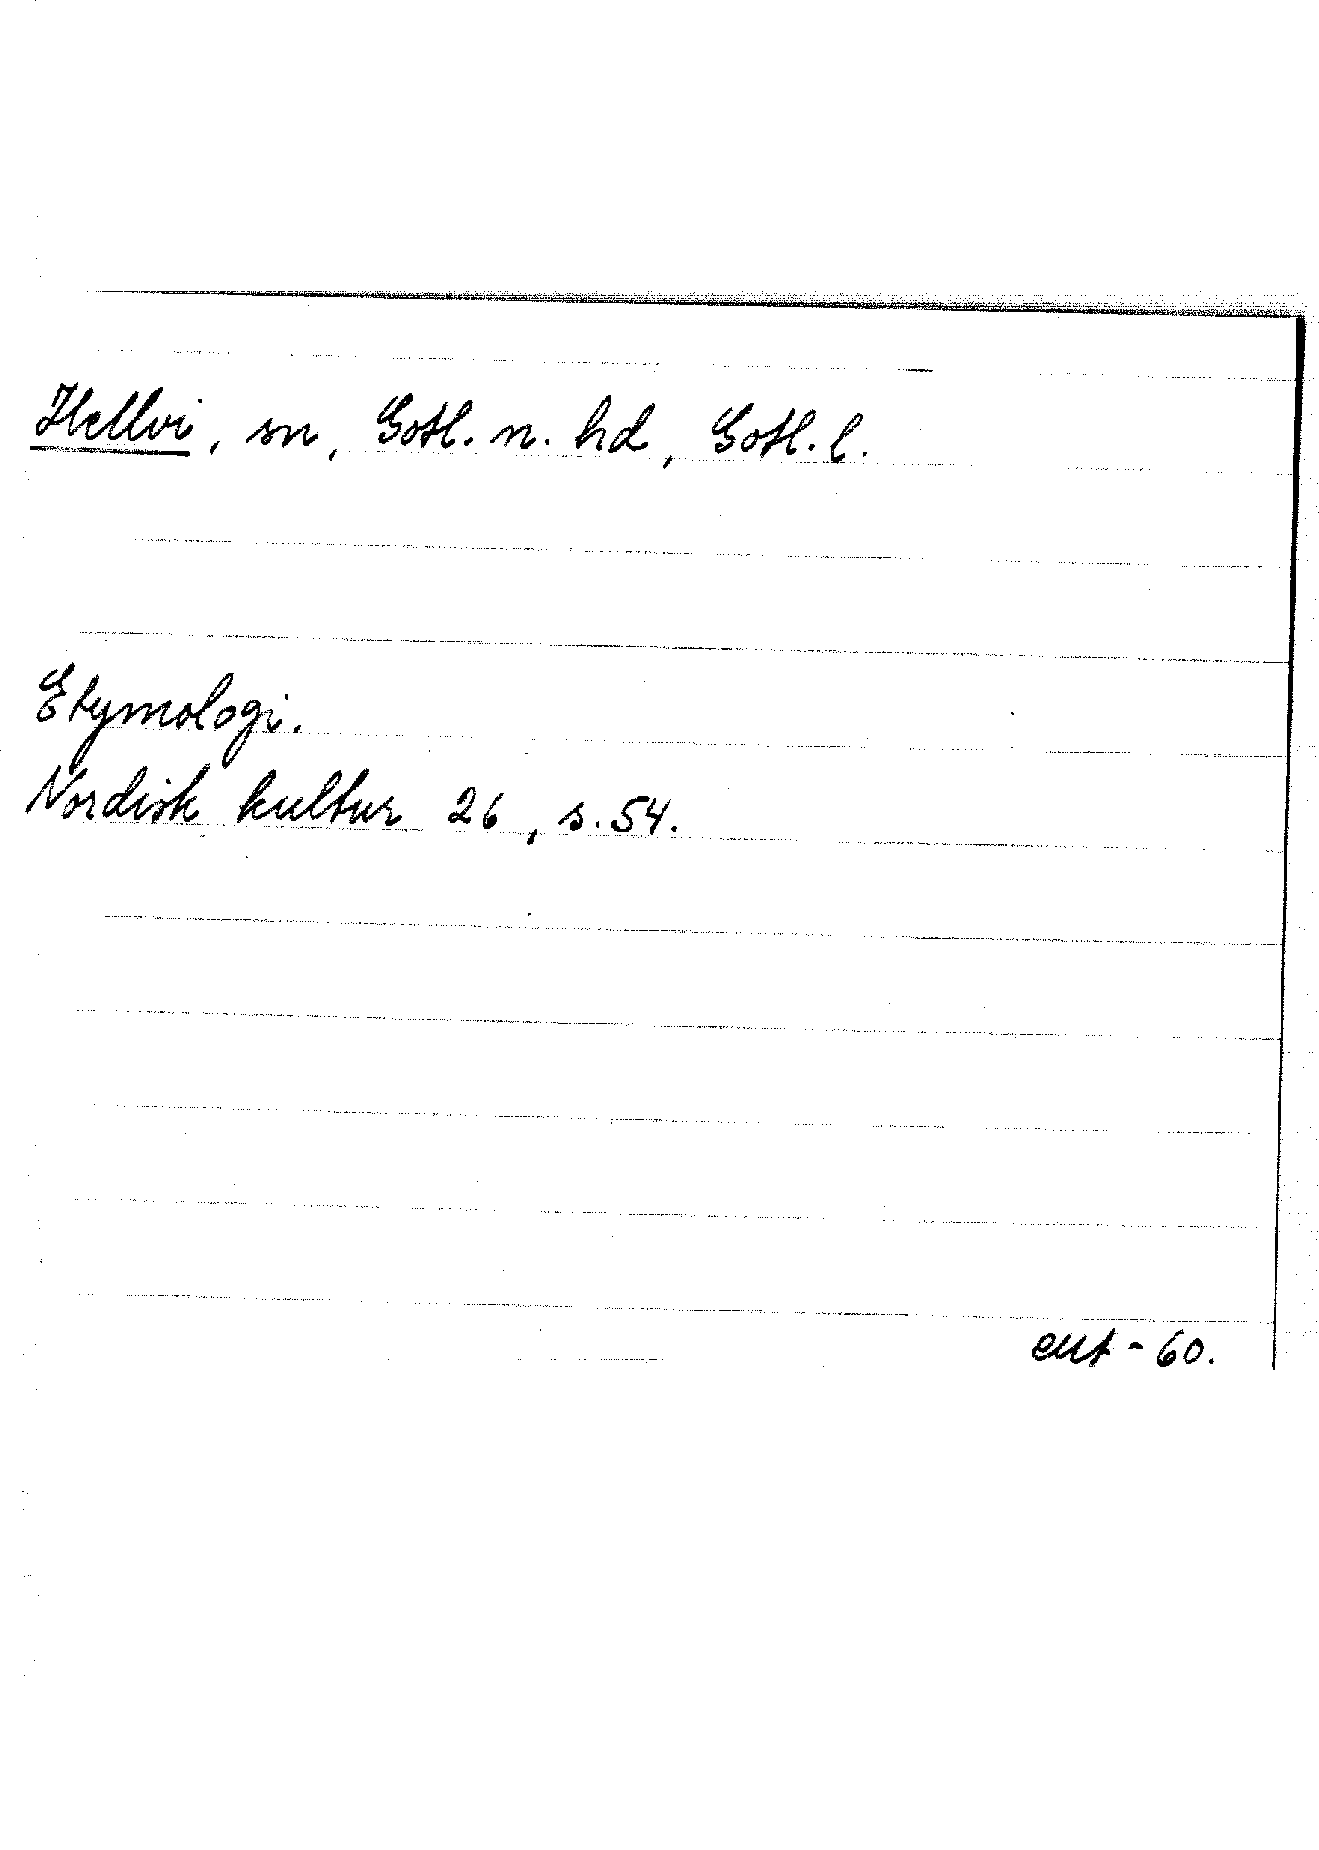 Hellvi, sn, Gotl. n. hd, Gotl. l.
Etymologi.
Nordisk kultur 26, s. 54.
- 60.